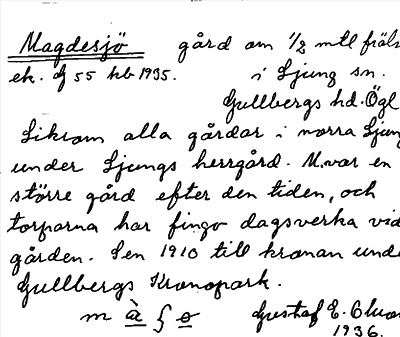 Magdesjö gård om 1/2 mtl fräls
ek. bl 55 hb 1935. i Ljung sn.
Gullbergs hd. Ögl
Liksom alla gårdar i norra Ljung
under Ljungs herrgård. M. var en
större gård efter den tiden, och
torparna har fingo dagsverka vid
gården. Sen 1910 till kronan unde
Gullbergs Kronopark.
Gustaf E.
1936.